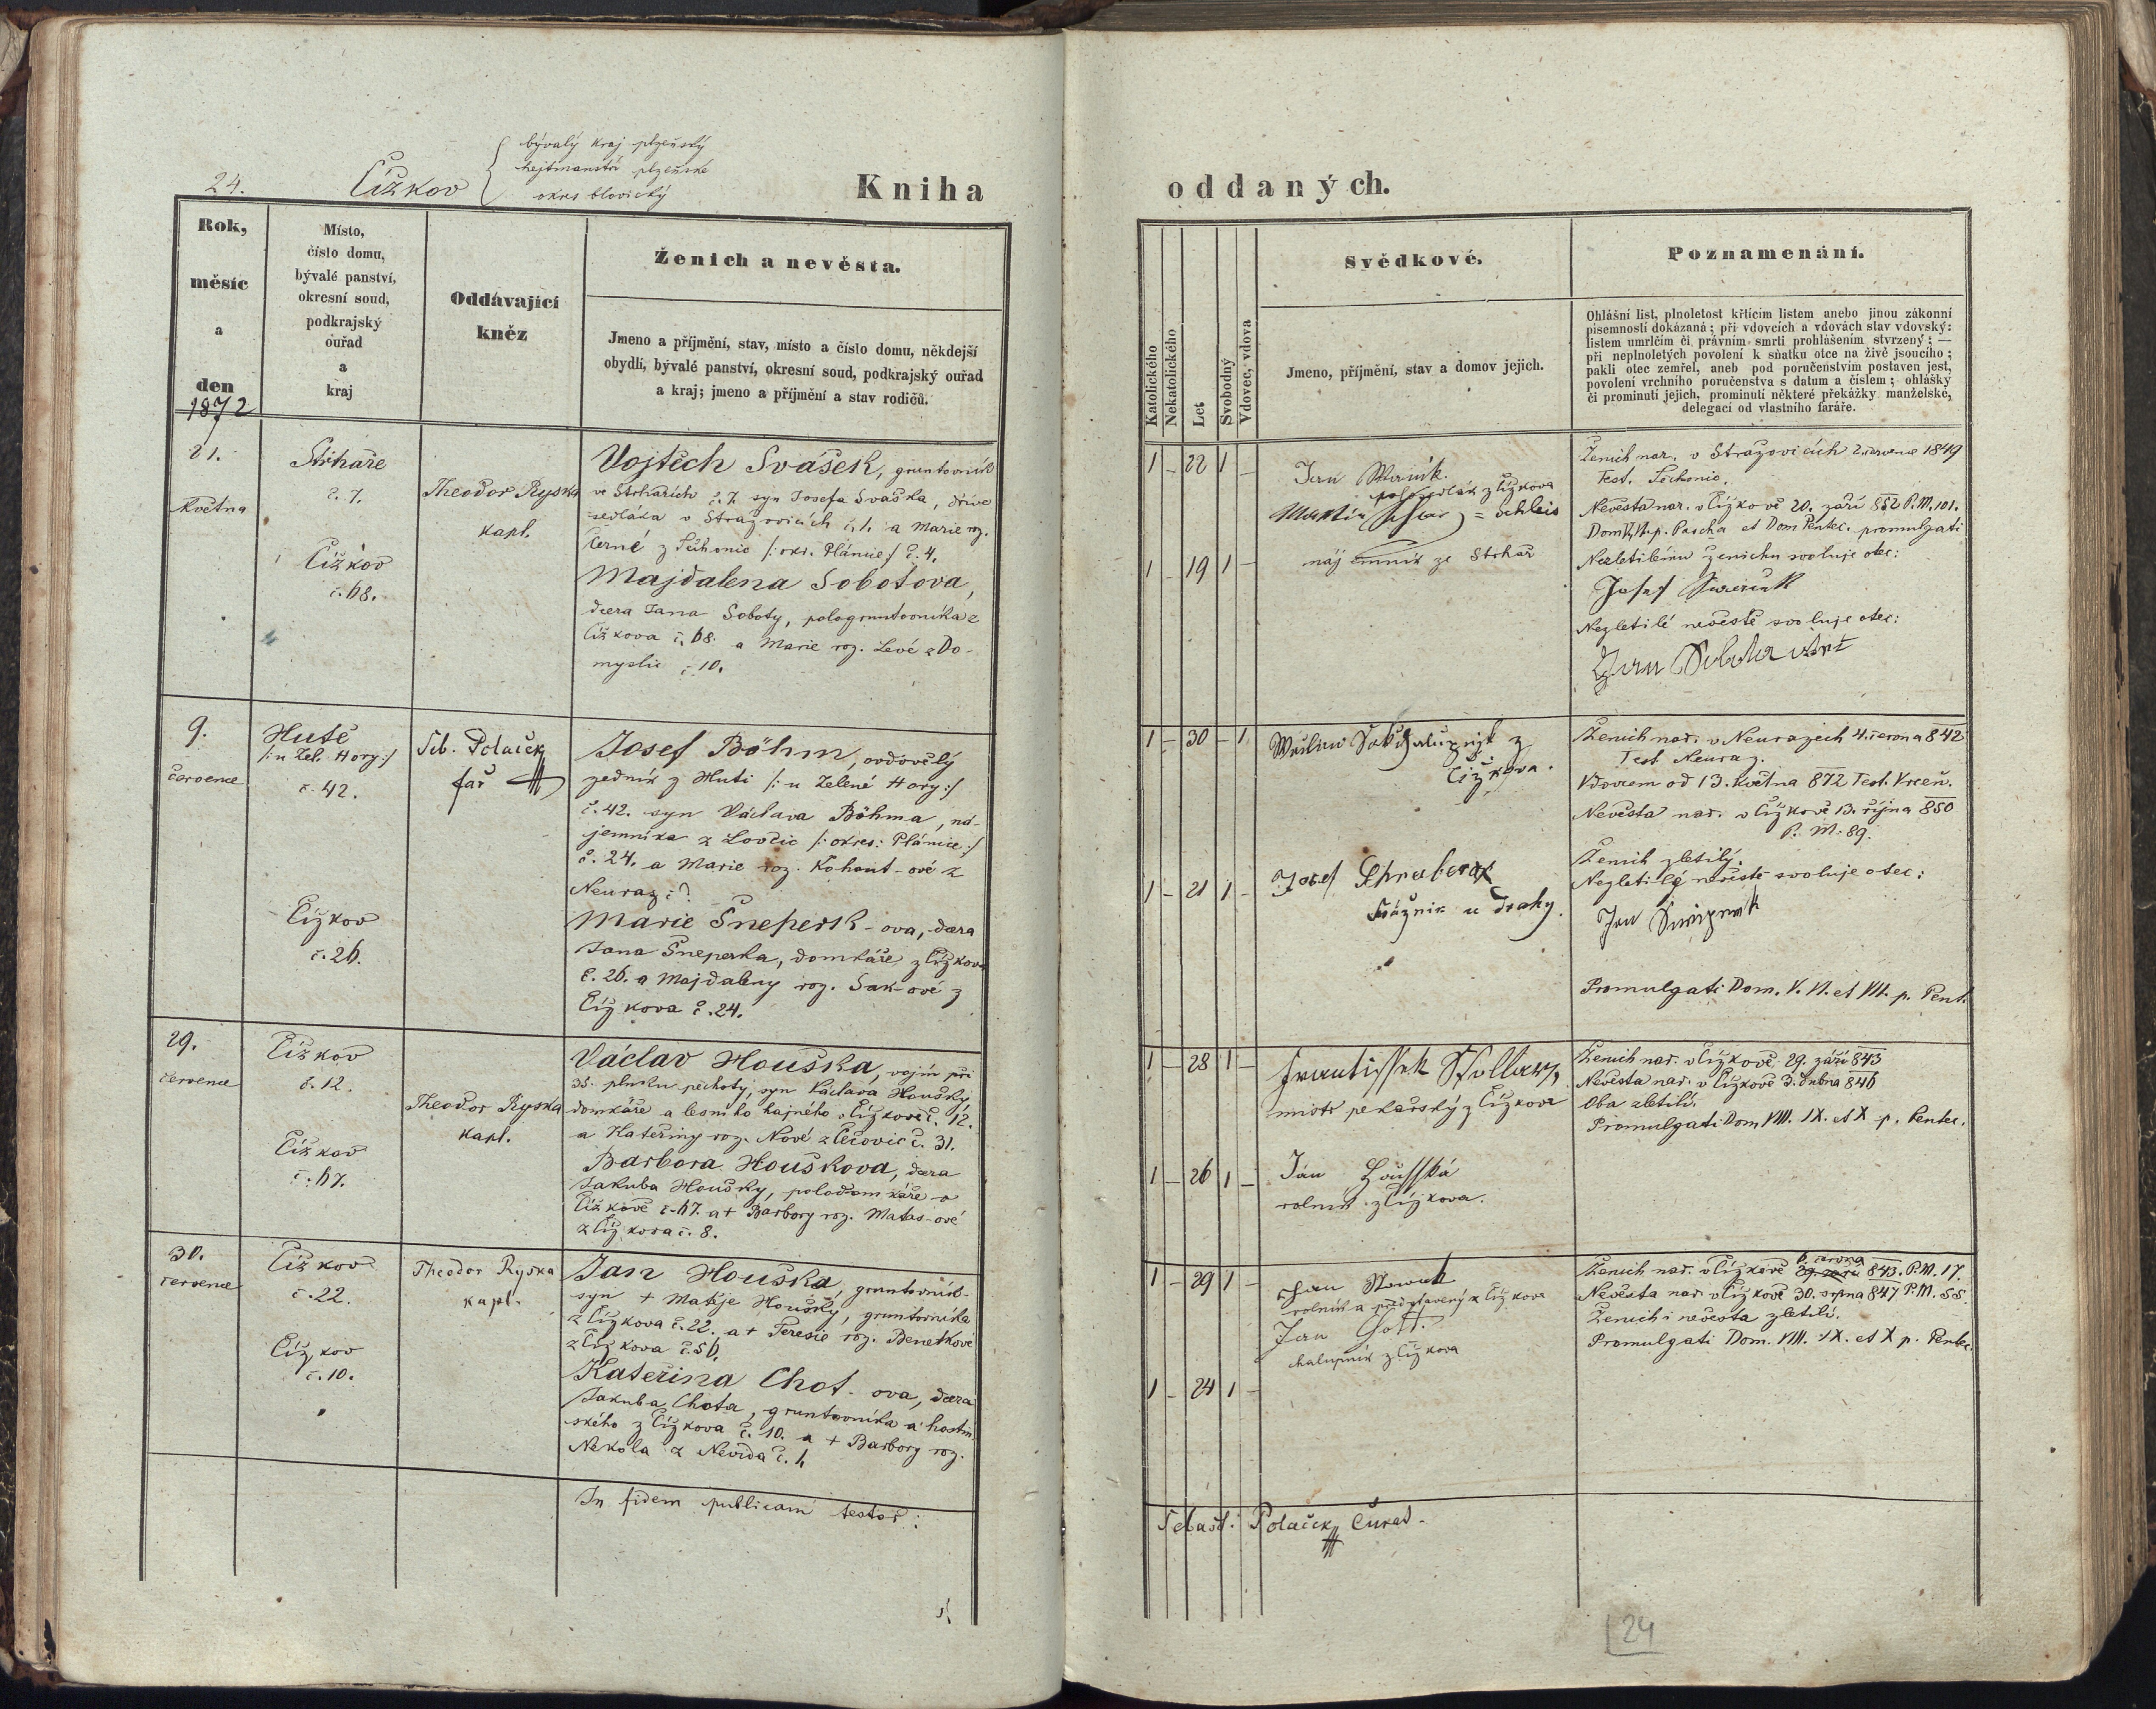 24.
Čížkov
bývalý kraj plzeňský
hejtmanství plzeňské
okres blovický
Kniha
Rok,
měsíc
a
den
1872
Místo,
číslo domu,
bývalé panství,
okresní soud,
podkrajský
ouřad
a
kraj
Oddávající
kněz
Ženich a nevěsta.
Jmeno a příjmění, stav, místo a číslo domu, někdejší
obydlí, bývalé panství, okresní soud, podkrajský ouřad
a kraj; jmeno a příjmění a stav rodičů.
21.
května
Střhaře
č. 7.
Čížkov
č. 68.
Theodor Ryska
kapl.
Vojtěch Svašek, gruntovník
ve Strhařích č. 7. syn Josefa Svaška, dříve
sedláka v Strážovicích č. 1. a Marie roz.
Černé z Těchonic /: okr. Plánice :/ č. 4.
Majdalena Sobotova,
dcera Jana Soboty, pologruntovníka z
Čížkova č. 68. a Marie roz. Levé z Do-
myslic č. 10.
9.
července
Hutě
/: u Zel. Hory :/
č. 42.
Čížkov
č. 26.
Seb. Polaček
far
Josef Böhm, ovdovělý
zedník z Huti /: u Zelené Hory :/
č. 42. syn Václava Böhma, ná-
jemníka z Lovčic /: okres: Plánice :/
č. 24. a Marie roz. Kohout-ové z
Neuraz č?
Marie Šneperk-ova, dcera
Jana Šneperka, domkáře z Čížkova
č. 26. a Majdaleny roz. Sak-ové z
Čížkova č. 24.
29.
července
Čížkov
č. 12.
Čížkov
č. 67.
Theodor Ryska
kapl.
Václav Houška, vojín při
35. pluku pěchoty, syn Václava Houšky,
domkáře a lesního hajného v Čížkově č. 12.
a Kateřiny roz. Nové z Čečovic č. 31.
Barbora Houškova, dcera
Jakuba Houšky, polodomkáře v
Čížkově č. 67. a + Barbory roz. Matas-ové
z Čížkova č. 8.
30.
července
Čížkov
č. 22.
Čížkov
č. 10.
Theodor Ryska
kapl.
Jan Houška, gruntovník
syn + Matěje Houšky, gruntovníka
z Čížkova č. 22. a + Teresie roz. Benetkové
z Čížkova č. 56.
Kateřina Chot-ova, dcera
Jakuba Chota, gruntovníka a hostin-
ského z Čížkova č. 10. a + Barbory roz.
Nekola z Nevida č. 1.
In fidem publicam testor:
oddaných.
Katolického
Nekatolického
Let
Svobodný
Vdovec, vdova
Svědkové.
Jmeno, příjmění, stav a domov jejich.
Poznamenání.
Ohlášní list, plnoletost křticím listem anebo jinou zákonní
písemností dokázaná; při vdovcích a vdovách stav vdovský:
listem umrlčím či právním smrti prohlášením stvrzený; —
při neplnoletých povolení k sňatku otce na živě jsoucího;
pakli otec zemřel, aneb pod poručenstvím postaven jest,
povolení vrchního poručenstva s datum a číslem; ohlášky
či prominutí jejich, prominutí některé překážky manželské,
delegací od vlastního faráře.
1 – 22 1 –
1 – 19 1 –
Jan
z Čížkova
Martin
nájemník ze Strhař
Ženich nar. v Strážovicích 2. července 1849
Test. Těchonic.
Nevěsta nar. v Čížkově 20. září 852 P. M. 101.
p. Pascha et Dom Pentec. promulgati
Nezletilému ženichu svoluje otec:
Josef
Nezletilé nevěstě svoluje otec:
Jan Sobota
1 – 30 – 1
1 – 21 1 –
z
Čížkova.
Josef
Strážník u dráhy.
Ženich nar. v Neurazech 4. června 842
Test Neuraz.
Vdovcem od 13. května 872 Test. Vrčeň.
Nevěsta nar. v Čížkově 13. října 850
P. M. 89.
Ženich zletilý.
Nezletilé nevěstě svoluje otec:
Jan
Promulgati Dom. V. VI. et VII. p. Pent.
1 – 28 1 –
1 – 26 1 –
Frantissek
mistr pekařský z Čížkova
Jan Housska
rolník z Čížkova.
Ženich nar. v Čížkově 29. září 843
Nevěsta nar. v Čížkově 3. dubna 846
Oba zletilí.
Promulgati Dom VIII. IX. et X p. Pentec.
1 – 29 1 –
1 – 24 1 –
Jan Nowak
rolník a představený z Čížkova
Jan Gott.
chalupník z Čížkova
6. června
Ženich nar. v Čížkově 29. září 843. P. M. 17.
Nevěsta nar. v Čížkově 30. srpna 847 P. M. 55.
Ženich i nevěsta zletilí.
Promulgati Dom. VIII. IX. et X p. Pentec.
Sebast: Polaček Curat.
24